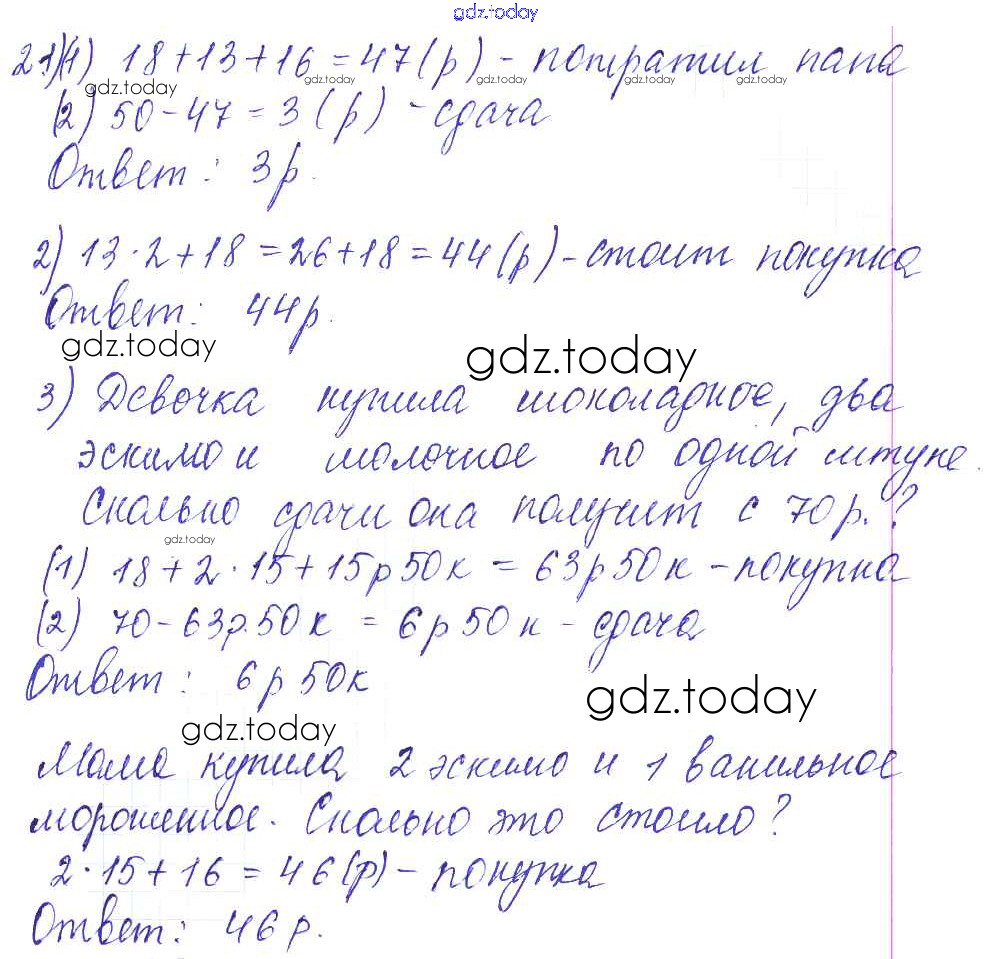 gdz.today
21)(1) 18+13+16=47(р) - потратил папа
gdz.today gdz.today gdz.today gdz.today
(2) 50-47=3(р) - сдача
Ответ: 3р.
2) 13·2+18=26+18=44(р) - стоит покупка
Ответ: 44р.
gdz.today gdz.today
3) Девочка купила шоколадное, два
эскимо и молочное по одной штуке.
Сколько сдачи она получит с 70р.?
gdz.today
(1) 18+2·15+15р50к = 63р50к - покупка
(2) 70-63р.50к = 6р50к - сдача
Ответ: 6р50к
gdz.today
gdz.today
Мама купила 2 эскимо и 1 ванильное
мороженное. Сколько это стоило?
2·15+16=46(р) - покупка
Ответ: 46р.